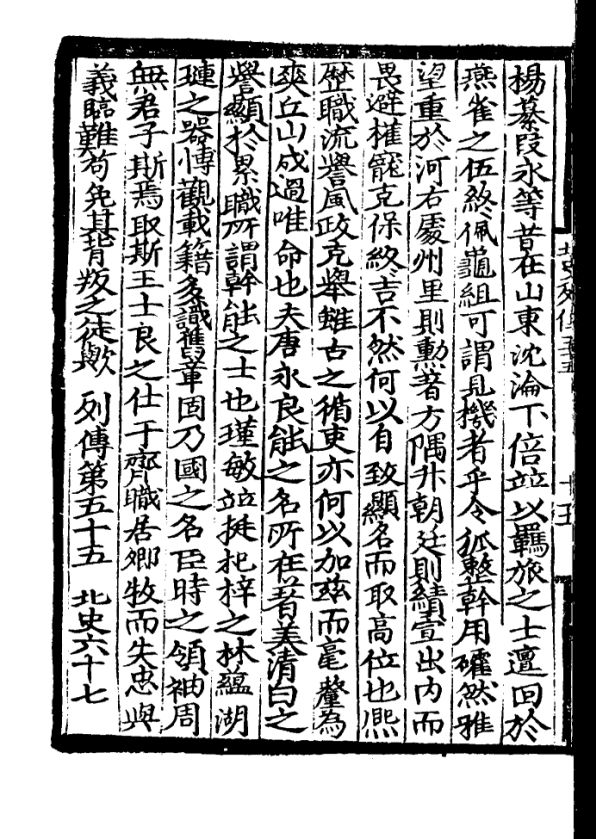 楊纂段永等昔在山東沈淪下倍竝以羈旅之士邅回於
燕雀之伍終佩龜組可謂見機者乎令狐整幹用確然雅
望重於河右處州里則勲著方隅升朝廷則績宣出內而
畏避權寵克保終吉不然何以自致顯名而取高位也熈
歷職流譽風政克舉雖古之循吏亦何以加茲而毫釐為
爽丘山成過唯命也夫唐永良能之名所在著美清白之
譽顯於累職所謂幹能之士也瑾敏竝挺杞梓之林蘊湖
璉之器愽觀載籍多識舊章固乃國之名臣時之領袖周
無君子斯焉取斯王士良之仕于齊職居郷牧而失忠與
義臨難苟免其背叛之徒歟 列傳第五十五 北史六十七
北史列傳五十五
十五